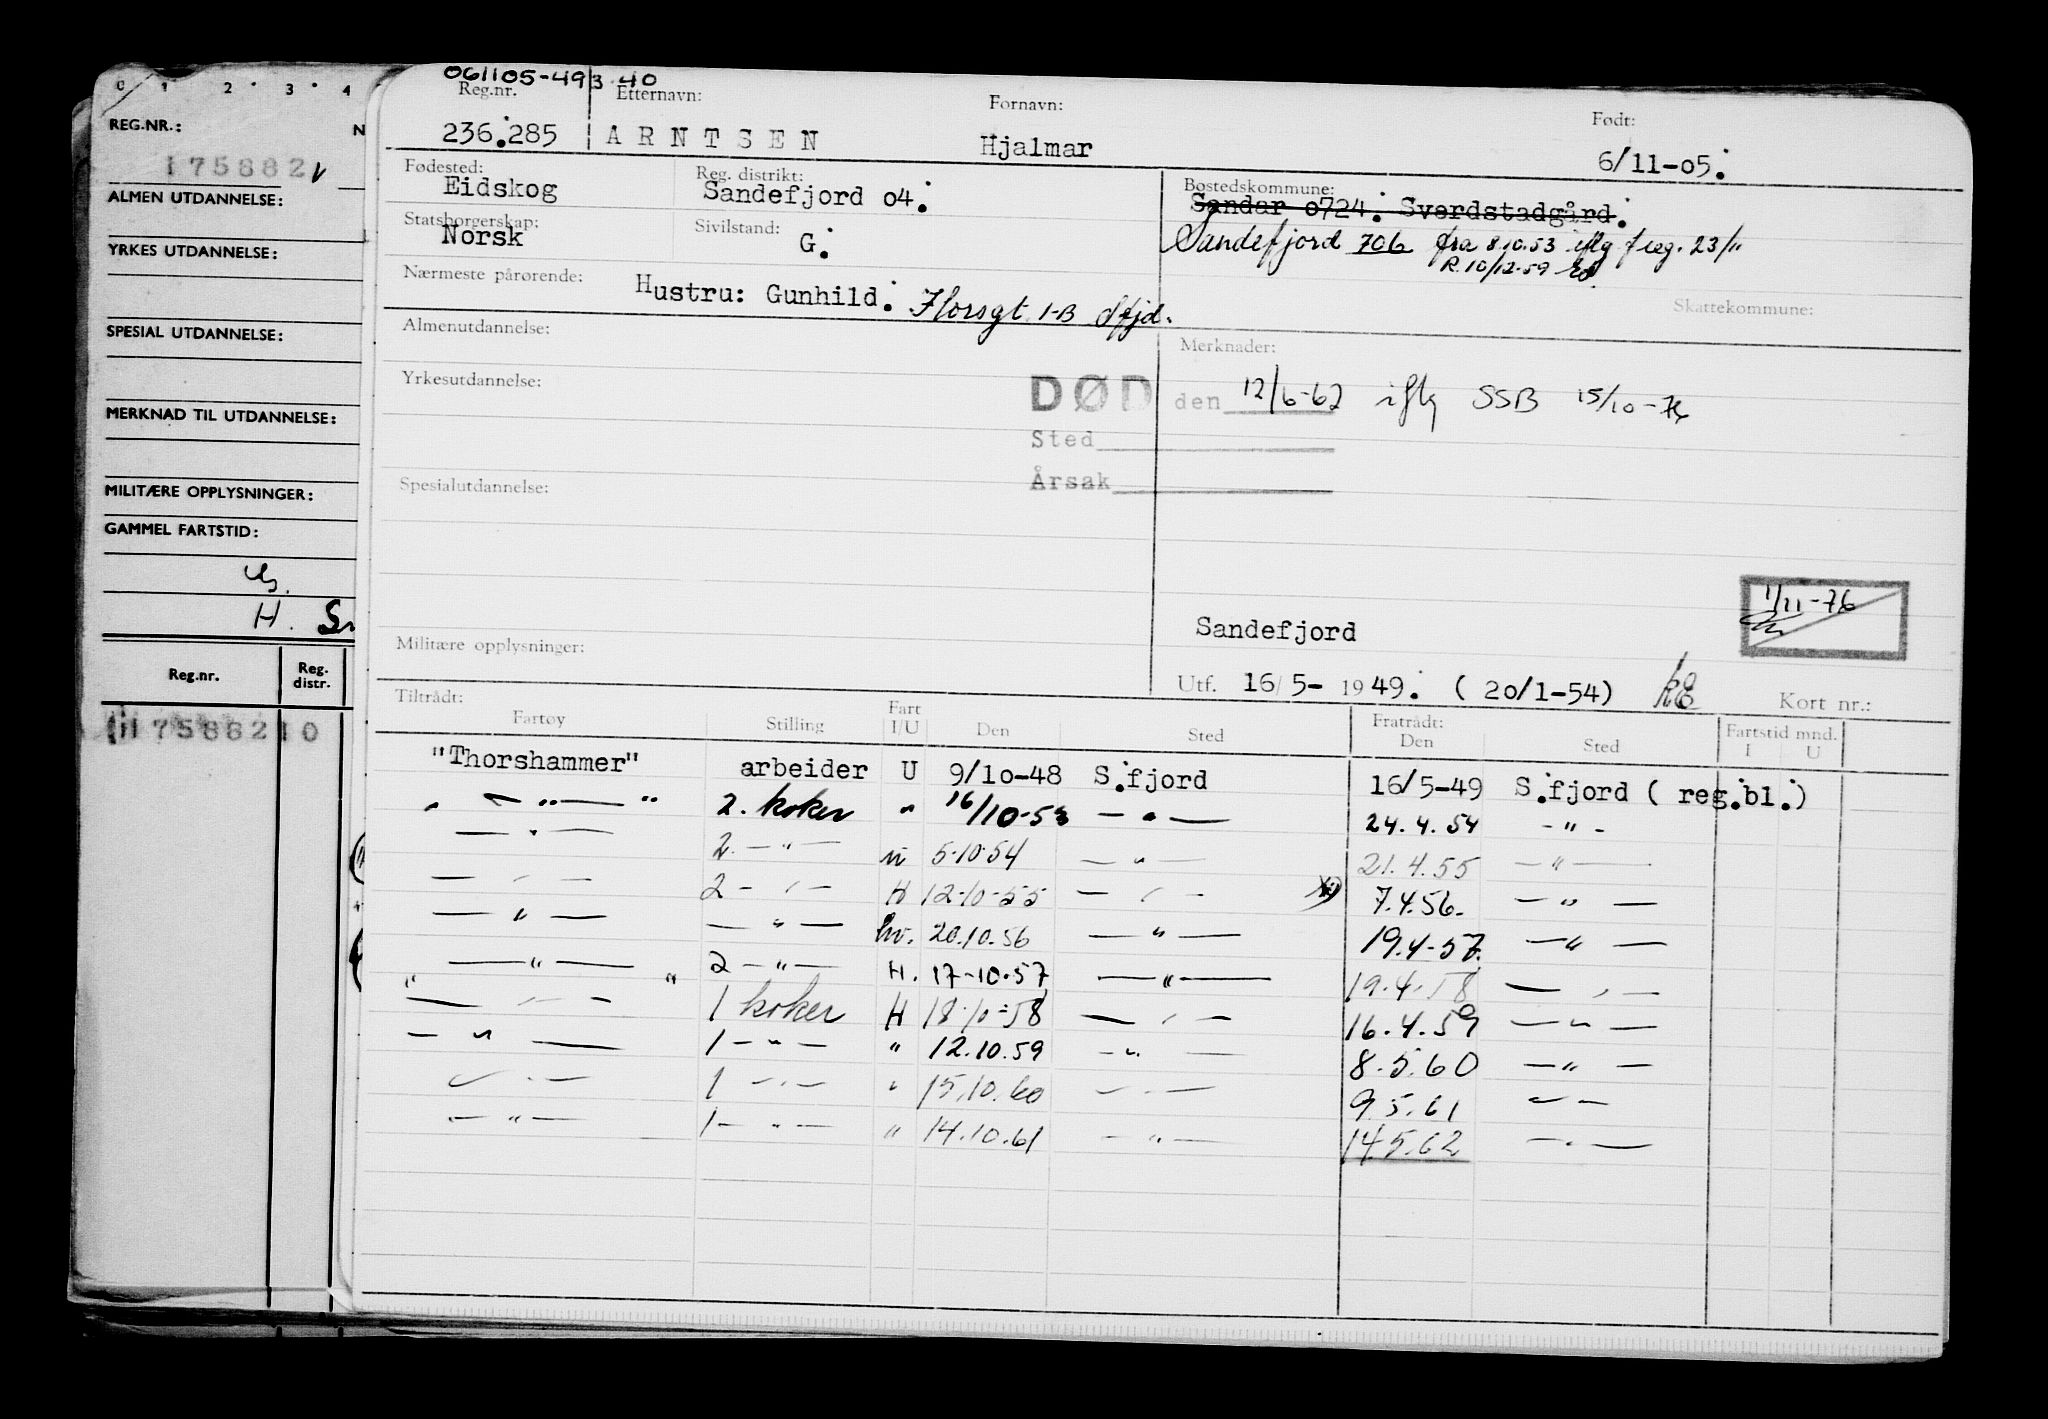 0 1 2 3 4
REG.NR.:
175882
ALMEN UTDANNELSE:
YRKES UTDANNELSE:
SPESIAL UTDANNELSE:
MERKNAD TIL UTDANNELSE:
MILITÆRE OPPLYSNINGER:
GAMMEL FARTSTID:
H.
Reg.nr. Reg. distr.
7588210
061105-493 40
Reg.nr. Etternavn: Fornavn: Født:
236.285 ARNTSEN Hjalmar 6/11-05.
Fødested: Reg. distrikt: Bostedskommune:
Eidskog Sandefjord 04. Sandar 0724. Sverdstadgård.
Statsborgerskap: Sivilstand:
Norsk G. Sandefjord 706 fra 8.10.53 iflg freg. 23/11
R.10/12-59
Nærmeste pårørende: Hustru: Gunhild. Florsgt. 1-B Sfjd. Skattekommune:
Almenutdannelse: Merknader:
Yrkesutdannelse: DØD den 12/6-62 iflg SSB 15/10-76
Sted
Årsak
Spesialutdannelse:
1/11-76
Sandefjord
Militære opplysninger:
Utf. 16/5-1949. (20/1-54) Kort nr.:
Tiltrådt: Fratrådt:
Fartøy Stilling Fart I/U Den Sted Den Sted Fartstid mnd. I U
"Thorshammer" arbeider U 9/10-48 S.fjord 16/5-49 S.fjord ( reg.bl.)
" — " — " 2. koker " 16/10-53 — " — 24.4.54 - " -
— " — 2. — " — 5.10.54 — " — 21.4.55 — " —
— " — 2 — " — H 12-10-55 — " — 7.4.56. — " —
— " — — " — hv. 20.10.56 — " — 19.4-57. — " —
— " — 2 — " — H. 17-10-57 — " — 19.4.58 — " —
— " — 1 koker H 18.10-58 — " — 16.4.59 — " —
— " — 1 — " — " 12.10.59 — " — 8.5.60 — " —
— " — 1 — " — " 15.10.60 — " — 9.5.61 — " —
— " — 1 — " — " 14.10.61 — " — 14.5.62 — " —